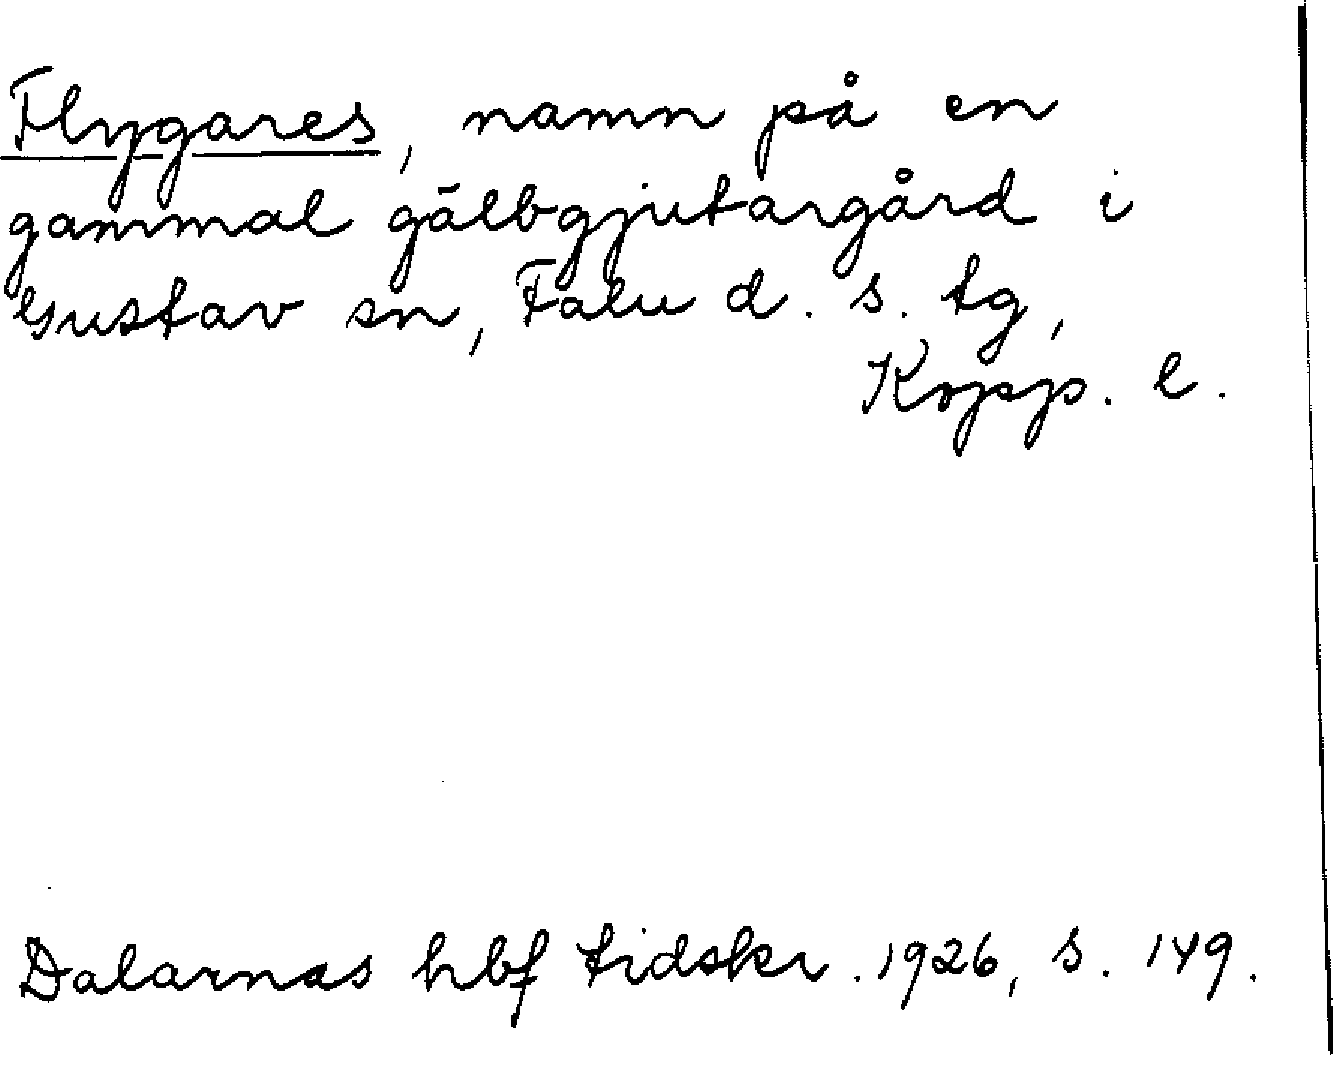 Flygares, namn på en
gammal gälbgjutargård i
Gustav sn, Falu d. s. tg,
Kopp. l.
Dalarnas hbf tidskr. 1926, s. 149.